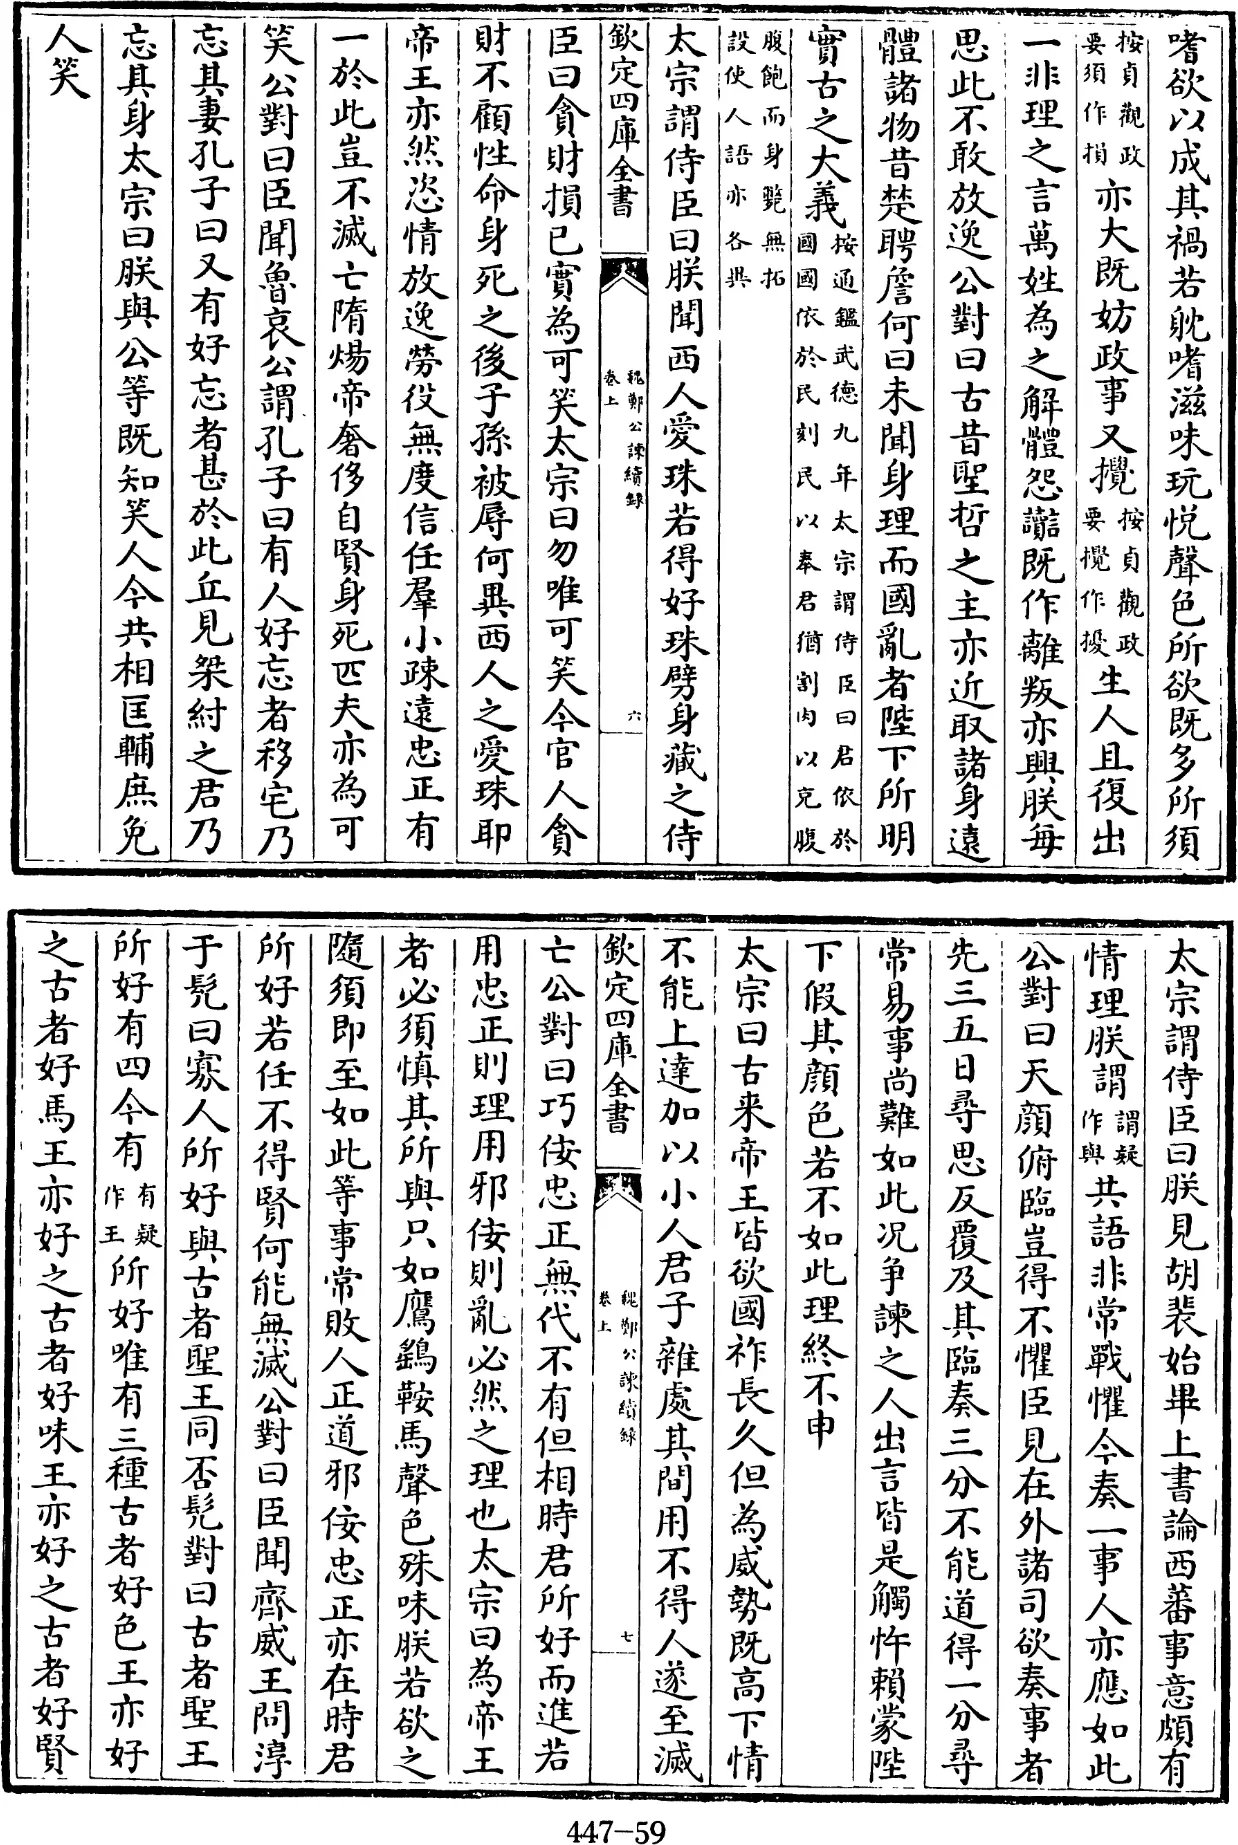 嗜欲以成其禍若躭嗜滋味玩悦聲色所欲既多所須
按貞觀政要須作損亦大既妨政事又攪按貞觀政要攪作擾生人且復出
一非理之言萬姓為之解體怨讟既作離叛亦興朕每
思此不敢放逸公對曰古昔聖哲之主亦近取諸身遠
體諸物昔楚聘詹何曰未聞身理而國亂者陛下所明
實古之大義按通鑑武德九年太宗謂侍臣曰君依於國國依於民刻民以奉君猶割肉以充腹
腹飽而身斃無拓設使人語亦各異
太宗謂侍臣曰朕聞西人愛珠若得好珠劈身藏之侍
欽定四庫全書 魏鄭公諫續錄卷上 六
臣曰貪財損已實為可笑太宗曰勿唯可笑今官人貪
財不顧性命身死之後子孫被辱何異西人之愛珠耶
帝王亦然恣情放逸勞役無度信任羣小疎遠忠正有
一於此豈不滅亡隋煬帝奢侈自賢身死匹夫亦為可
笑公對曰臣聞魯哀公謂孔子曰有人好忘者移宅乃
忘其妻孔子曰又有好忘者甚於此丘見桀紂之君乃
忘其身太宗曰朕與公等既知笑人今共相匡輔庶免
人笑
太宗謂侍臣曰朕見胡裴始畢上書論西蕃事意頗有
情理朕謂謂疑作與共語非常戰懼今奏一事人亦應如此
公對曰天顔俯臨豈得不懼臣見在外諸司欲奏事者
先三五日尋思反覆及其臨奏三分不能道得一分尋
常易事尚難如此况争諫之人出言皆是觸忤賴蒙陛
下假其顔色若不如此理終不申
太宗曰古来帝王皆欲國祚長久但為威勢既高下情
不能上達加以小人君子雜處其間用不得人遂至滅
欽定四庫全書 魏鄭公諫續錄卷上 七
亡公對曰巧佞忠正無代不有但相時君所好而進若
用忠正則理用邪佞則亂必然之理也太宗曰為帝王
者必須慎其所與只如鷹鷂鞍馬聲色殊味朕若欲之
隨須即至如此等事常敗人正道邪佞忠正亦在時君
所好若任不得賢何能無滅公對曰臣聞齊威王問淳
于髠曰寡人所好與古者聖王同否髠對曰古者聖王
所好有四今有有疑作王所好唯有三種古者好色王亦好
之古者好馬王亦好之古者好味王亦好之古者好賢
447-59